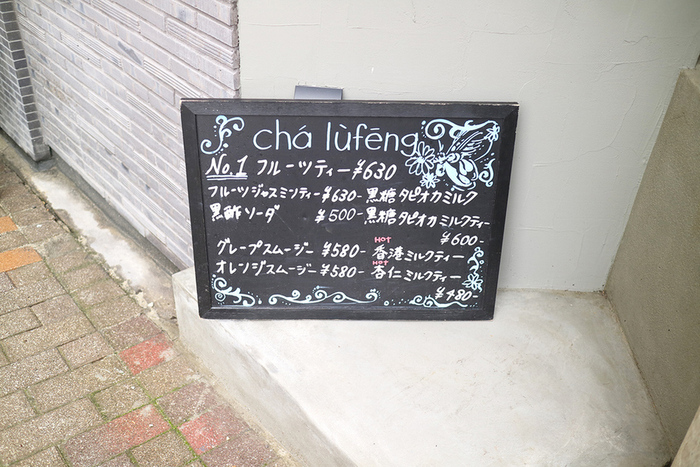 chá lùfēng
No.1 フルーツティー ¥630
フルーツジャスミンティー ¥630-
黒酢ソーダ ¥500-
グレープスムージー ¥580-
オレンジスムージー ¥580-
黒糖タピオカミルク
黒糖タピオカミルクティー
¥600-
HOT
香港ミルクティー
HOT
杏仁ミルクティー
¥480-